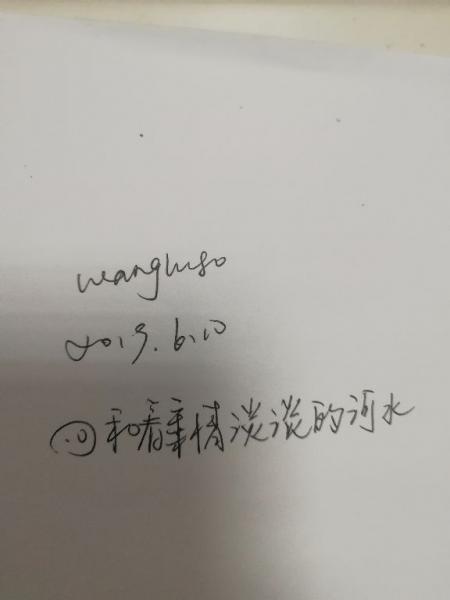 wangluso
2019.6.10
和着事情淡淡的河水